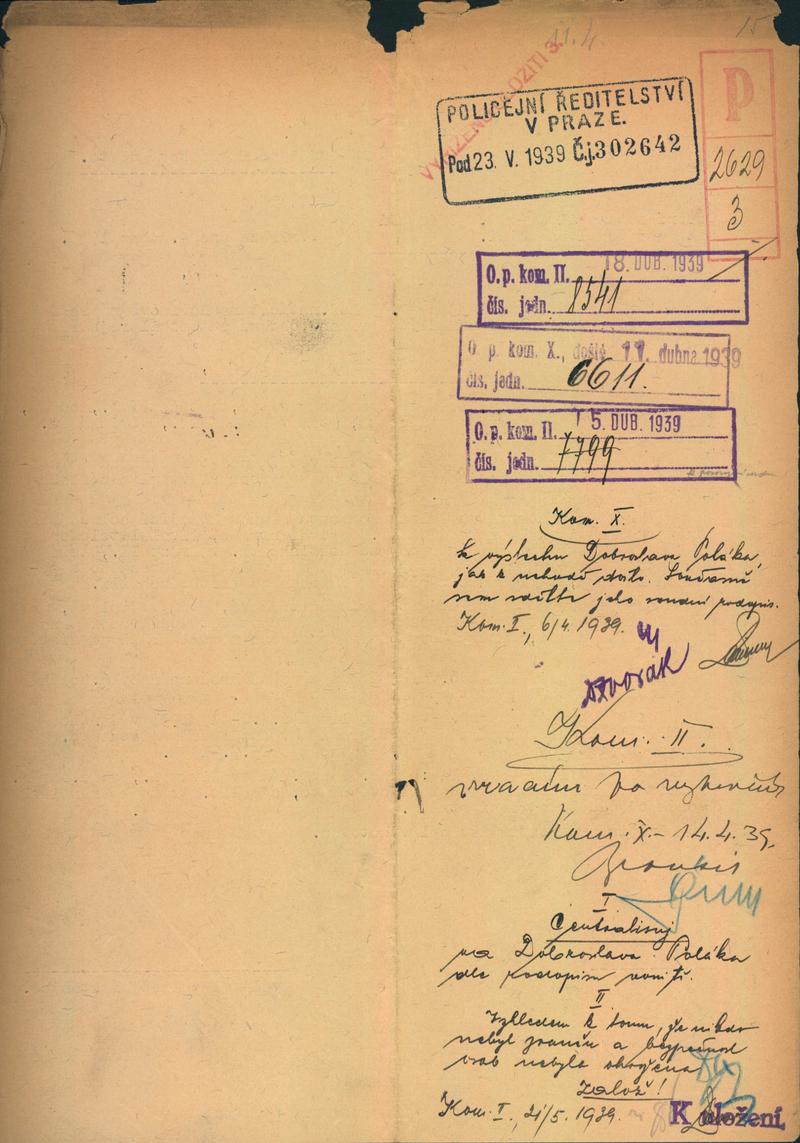 11.4.
15
VYŘÍZENO ULOŽITI 3.
P
2629
3
POLICEJNÍ ŘEDITELSTVÍ
V PRAZE.
Pod 23. V. 1939 Č.j. 302642
O. p. kom. II. 18. DUB. 1939
čís. jedn. 8541
O. p. kom. X., došlo 11. dubna 1939
čís. jedn. 6611.
O. p. kom. II. 15. DUB. 1939
čís. jedn. 7799
Kom. X.
k výslechu Dobroslava Poláka,
jak k nehodě došlo. Současně
sem sdělte jeho soudní podpis.
Kom. I., 6/4. 1939.
Dvořák
Kom. II.
vracím po
Kom. X - 14.4.39.
I
Centralisuj
na Dobroslava Poláka
dle podpisu
II
Vzhledem k tomu, že nikdo
nebyl zraněn a bezpečnost
osob nebyla ohrožena
Založ!
Kom. I., 21/5. 1939.
K uložení.